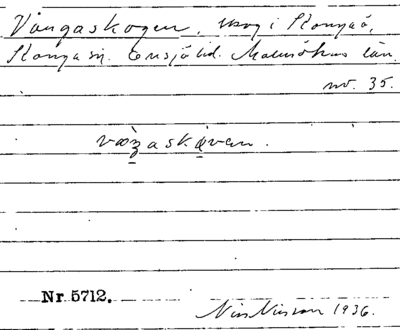 Vångaskogen, skog i Konga å,
Konga sn. Onsjö hd. Malmöhus län.
nv. 35.
vɔŋaskǫven.
Nr 5712.
Nils Nilsson 1936.